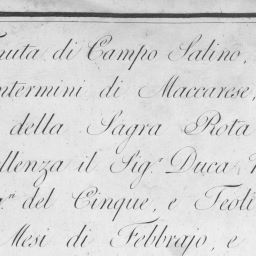 nuta di Campo Salino,
ntermini di Maccarese,
della Sagra Rota
llenza il Sig.r Duca
del Cinque, e Teoli
Mesi di Febbrajo, e